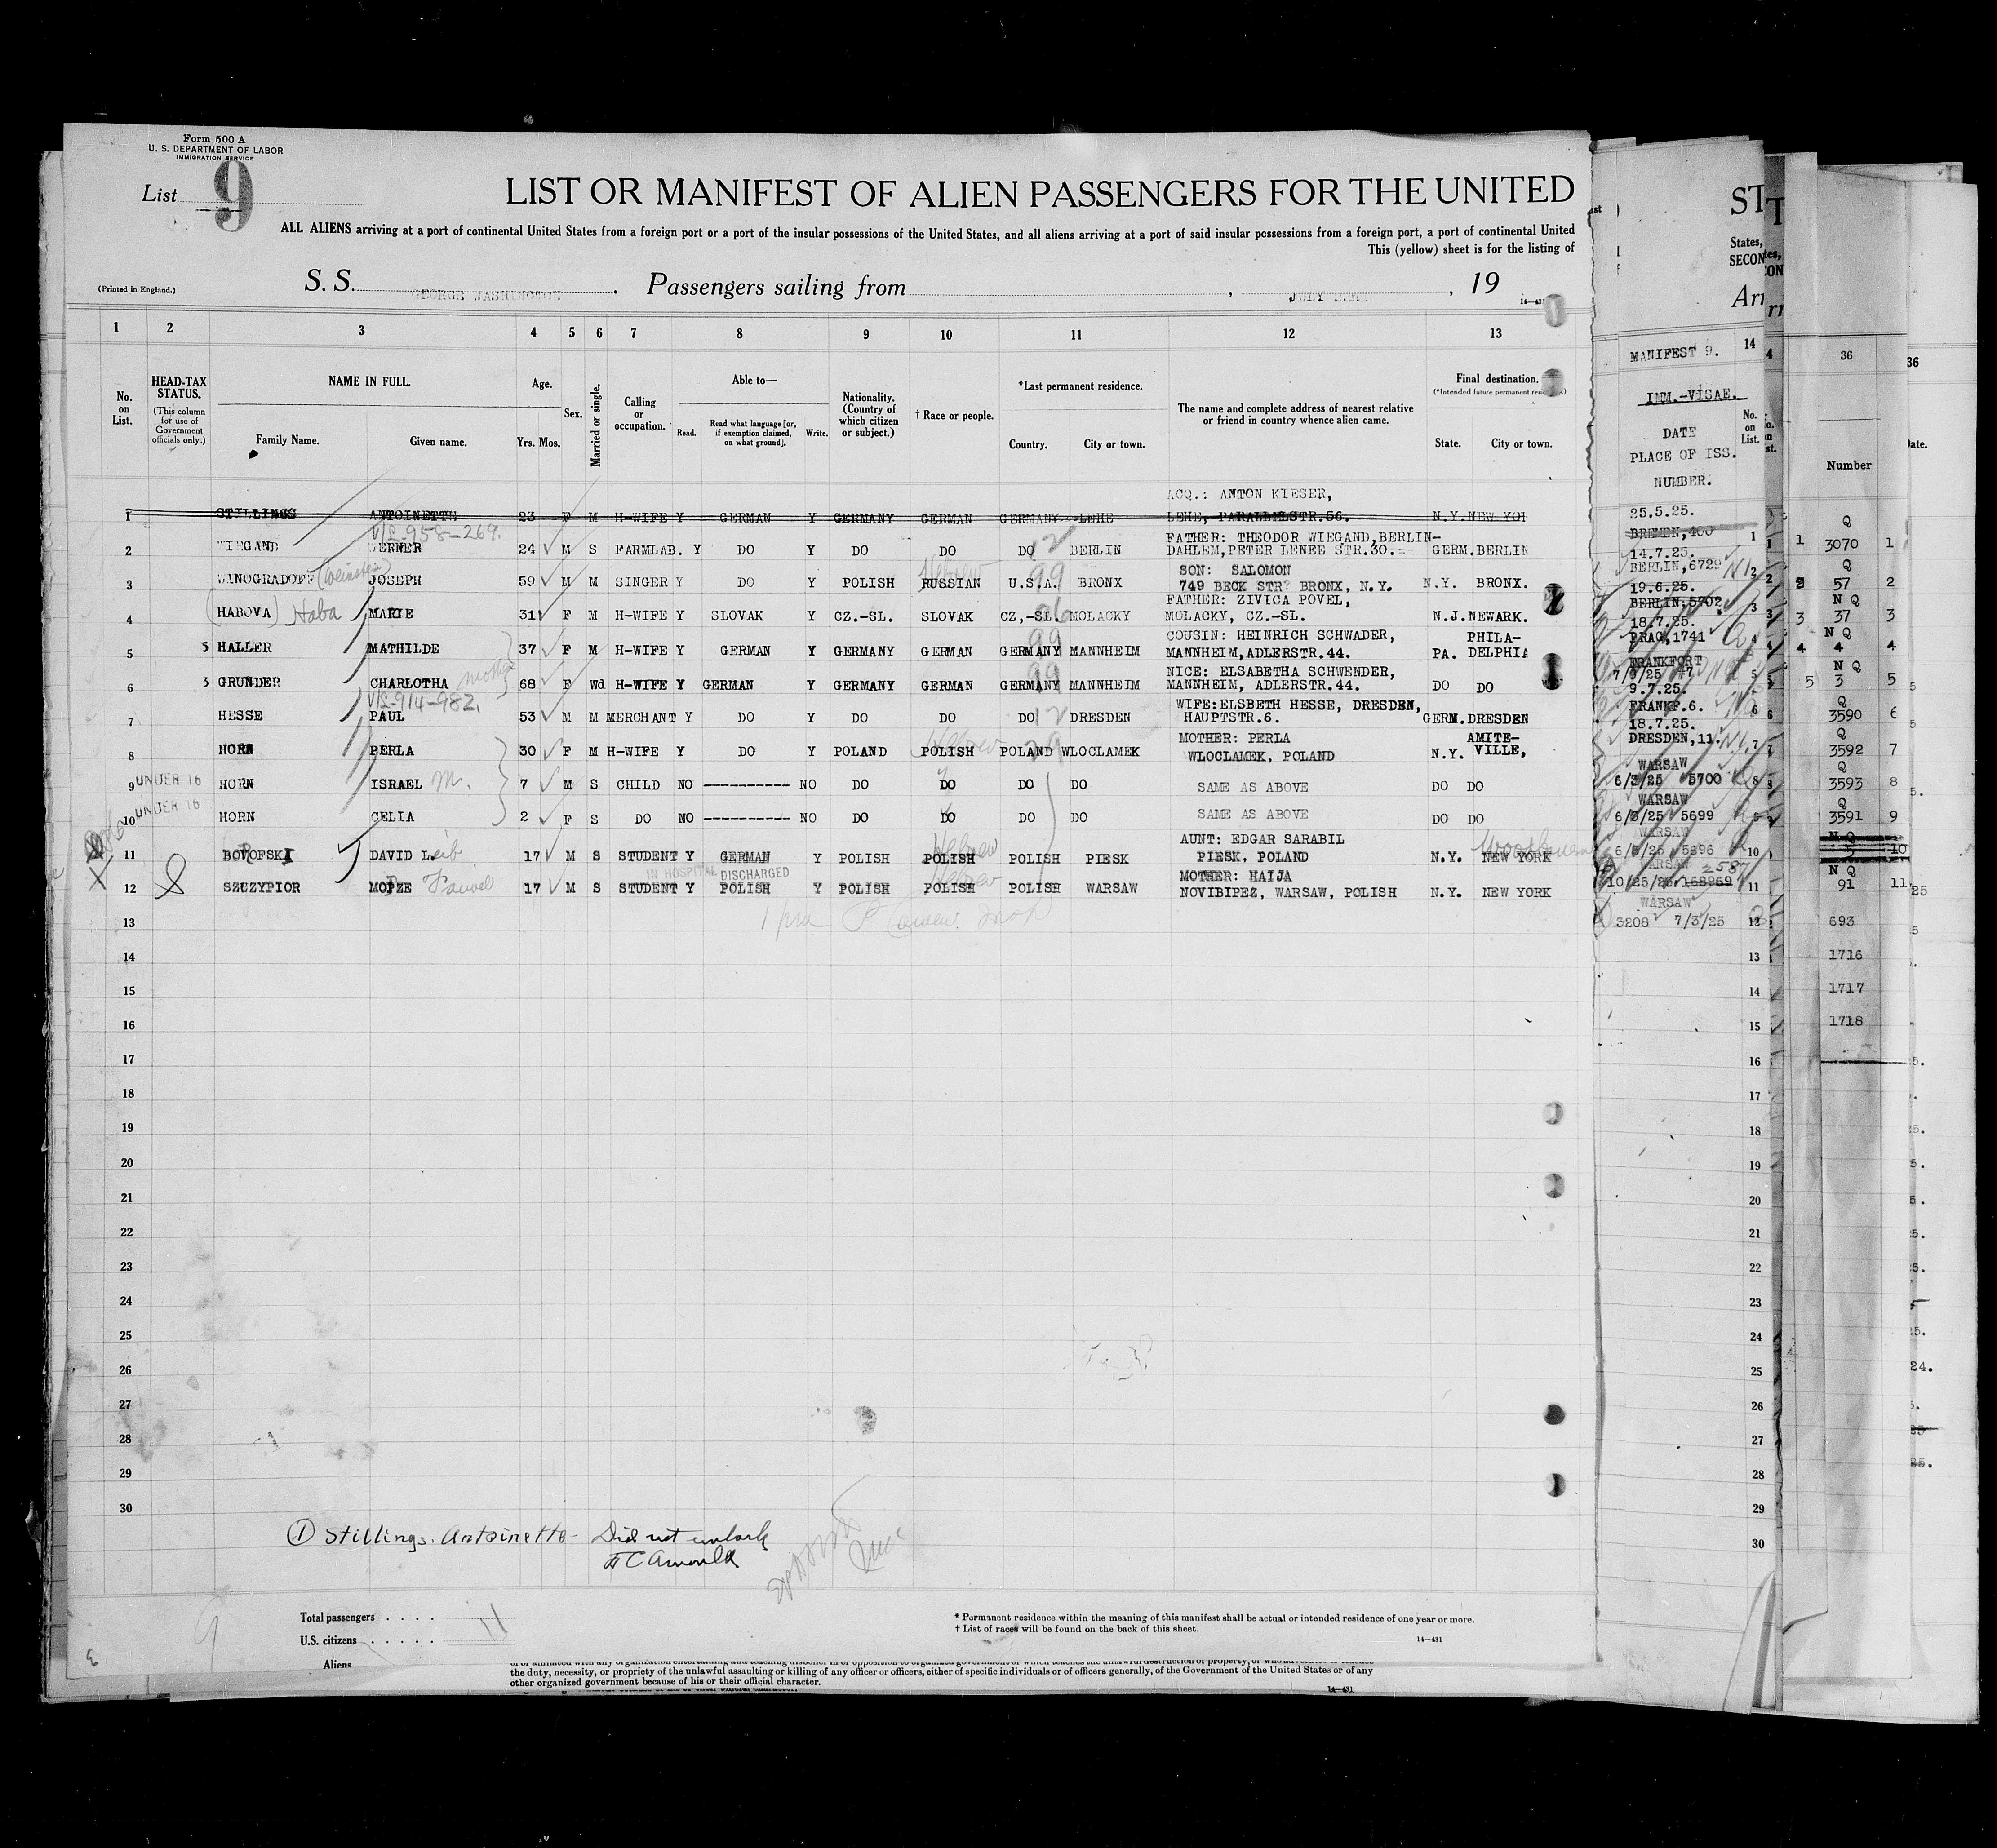 Form 500 A
U. S. DEPARTMENT OF LABOR
IMMIGRATION SERVICE
List 9
LIST OR MANIFEST OF ALIEN PASSENGERS FOR THE UNITED
ALL ALIENS arriving at a port of continental United States from a foreign port or a port of the insular possessions of the United States, and all aliens arriving at a port of said insular possessions from a foreign port, a port of continental United
This (yellow) sheet is for the listing of
(Printed in England.)
S. S. GEORGE WASHINGTON, Passengers sailing from , JULY , 19
1 2 3 4 5 6 7 8 9 10 11 12 13
No. on List.
HEAD-TAX STATUS.
(This column for use of Government officials only.)
NAME IN FULL.
Family Name. Given name.
Age.
Yrs. Mos.
Sex.
Married or single.
Calling or occupation.
Able to—
Read. Read what language [or, if exemption claimed, on what ground]. Write.
Nationality. (Country of which citizen or subject.)
† Race or people.
*Last permanent residence.
Country. City or town.
The name and complete address of nearest relative or friend in country whence alien came.
Final destination.
(*Intended future permanent
State. City or town.
ACQ.: ANTON KIESER,
1 STILLINGS ANTOINETTE 23 F M H-WIFE Y GERMAN Y GERMANY GERMAN GERMANY LEHE LEHE, PARALLELSTR.56. N.Y. NEW YO
V/L-958-269.
FATHER: THEODOR WIEGAND, BERLIN-
2 WIEGAND WERNER 24 M S FARMLAB. Y DO Y DO DO DO 12 BERLIN DAHLEM, PETER LENEE STR.30. GERM. BERLIN
SON: SALOMON
3 WINOGRADOFF (Weinstein) JOSEPH 59 M M SINGER Y DO Y POLISH RUSSIAN Hebrew U.S.A. 99 BRONX 749 BECK STR? BRONX, N.Y. N.Y. BRONX.
FATHER: ZIVICA POVEL,
4 (HABOVA) Haba MARIE 31 F M H-WIFE Y SLOVAK Y CZ.-SL. SLOVAK CZ,-SL. MOLACKY MOLACKY, CZ.-SL. N.J. NEWARK.
COUSIN: HEINRICH SCHWADER, PHILA-
5 5 HALLER MATHILDE 37 F M H-WIFE Y GERMAN Y GERMANY GERMAN GERMANY 99 MANNHEIM MANNHEIM, ADLERSTR.44. PA. DELPHIA
NICE: ELSABETHA SCHWENDER,
6 3 GRUNDER CHARLOTHA mother 68 F Wd H-WIFE Y GERMAN Y GERMANY GERMAN GERMANY 99 MANNHEIM MANNHEIM, ADLERSTR.44. DO DO
V/L-914-982,
WIFE: ELSBETH HESSE, DRESDEN,
7 HESSE PAUL 53 M M MERCHANT Y DO Y DO DO DO 12 DRESDEN HAUPTSTR.6. GERM. DRESDEN
MOTHER: PERLA AMITE-
8 HORN PERLA 30 F M H-WIFE Y DO Y POLAND POLISH Hebrew POLAND WLOCLAMEK WLOCLAMEK, POLAND N.Y. VILLE,
9 UNDER 16 HORN ISRAEL M. 7 M S CHILD NO ---------- NO DO DO DO DO SAME AS ABOVE DO DO
10 UNDER 16 HORN CELIA 2 F S DO NO ---------- NO DO DO DO DO SAME AS ABOVE DO DO
AUNT: EDGAR SARABIL
11 BOVOFSKI DAVID Leib 17 M S STUDENT Y GERMAN Y POLISH POLISH Hebrew POLISH PIESK PIESK, POLAND N.Y. NEW YORK
IN HOSPITAL DISCHARGED
MOTHER: HAIJA
12 X SZCZYPIOR 17 M S STUDENT Y POLISH Y POLISH POLISH Hebrew POLISH WARSAW NOVIBIPEZ, WARSAW, POLISH N.Y. NEW YORK
13
14
15
16
17
18
19
20
21
22
23
24
25
26
27
28
29
30
① Stillings. Antoinette- Did not embark
Total passengers . . . . 11
U.S. citizens . . . . .
Aliens
* Permanent residence within the meaning of this manifest shall be actual or intended residence of one year or more.
† List of races will be found on the back of this sheet.
14—431
the duty, necessity, or propriety of the unlawful assaulting or killing of any officer or officers, either of specific individuals or of officers generally, of the Government of the United States or of any
other organized government because of his or their official character.
14—431
States,
SECON
MANIFEST 9.
14
IMM.-VISAE.
DATE
PLACE OF ISS.
NUMBER.
No. on List.
25.5.25.
BREMEN, 400
14.7.25.
BERLIN, 6729
19.6.25.
BERLIN, 5702
18.7.25.
PRAG, 1741
FRANKFORT
7/9/25 #7
9.7.25.
FRANKF.6.
18.7.25.
DRESDEN, 11.
WARSAW
6/3/25 5700
WARSAW
6/3/25 5699
WARSAW
6/3/25 5696
WARSAW
10/25/25 168969 258
WARSAW
3208 7/3/25
36
Number
Q
3070
Q
57
N Q
37
N Q
4
N Q
3
Q
3590
Q
3592
Q
3593
Q
3591
N Q
N Q
91
693
1716
1717
1718
36